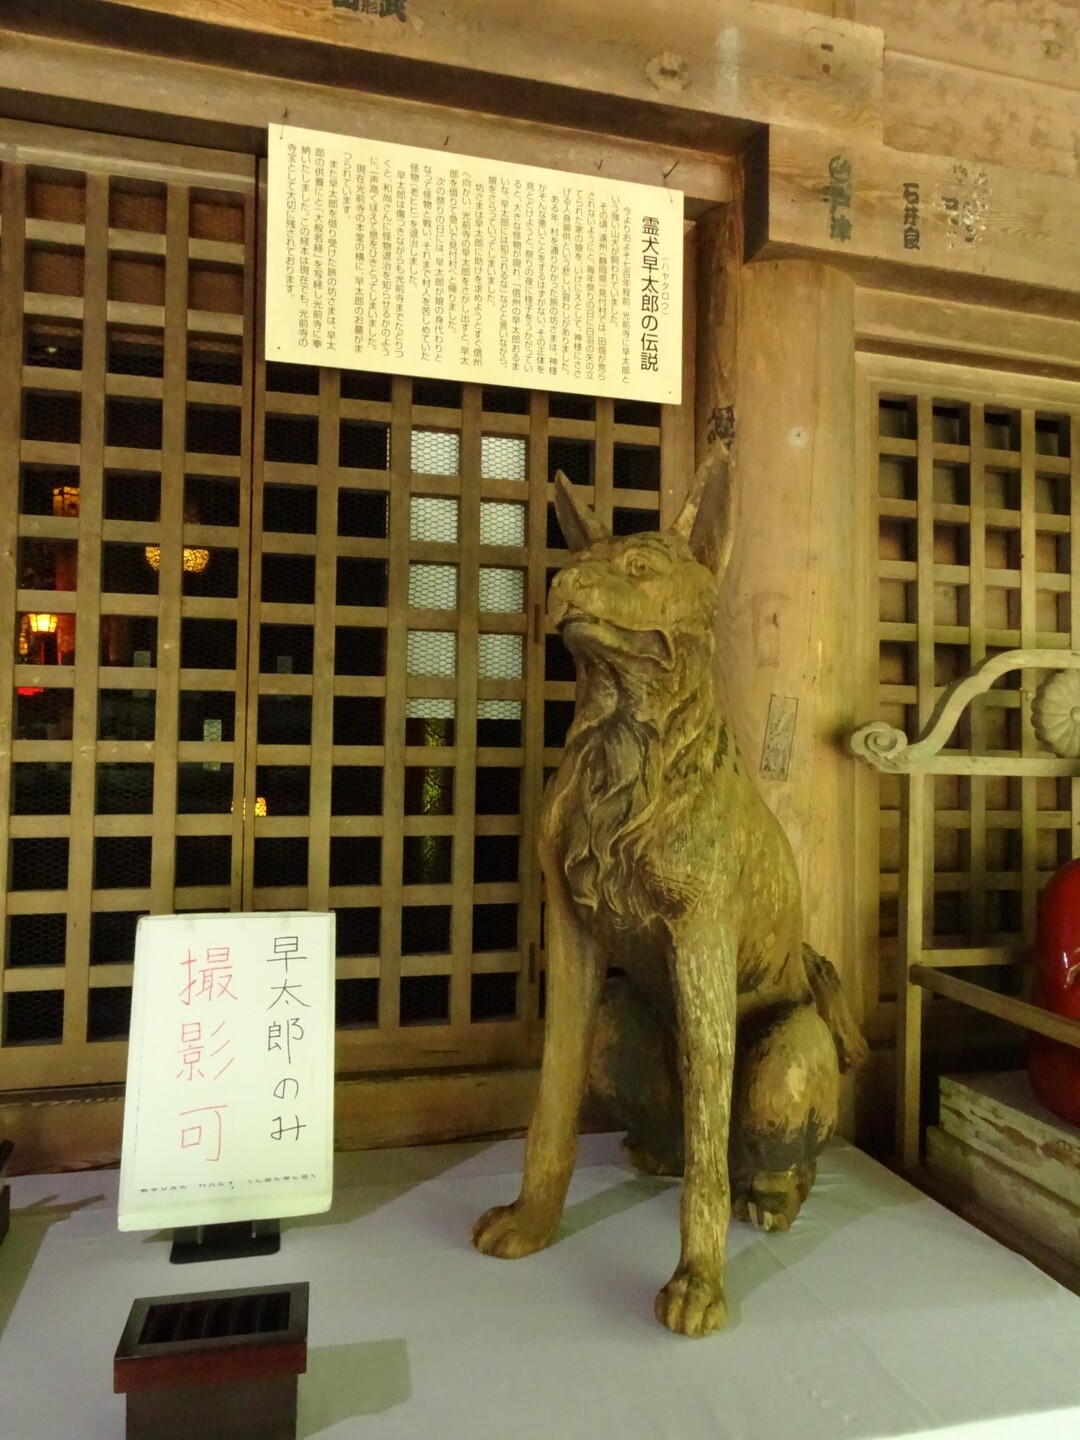 霊犬早太郎の伝説
(ハヤタロウ)
今よりおよそ七百年程前、光前寺に早太郎と
いう強い山犬が飼われていました。
その頃、遠州(静岡県)見付村では、田畑が荒ら
されないようにと、毎年祭りの日に白羽の矢の立
てられた家の娘を、いけにえとして、神様にささ
げる人身御供という悲しい習わしがありました。
ある年、村を通りかかった旅の坊さまは、神様
がそんな悪いことをするはずがない、その正体を
見とどけようと、祭りの夜に様子をうかがってい
ると、大きな怪物が現れ、「信州の早太郎おるま
いな、早太郎には知られるな」などと言いながら、
娘をさらっていってしまいました。
坊さまは早太郎に助けを求めようとすぐ信州
へ向かい、光前寺の早太郎をさがし出すと、早太
郎を借りて急いで見付村へと帰りました。
次の祭りの日には、早太郎が娘の身代わりと
なって怪物と戦い、それまで村人を苦しめていた
怪物(老ヒヒ)を退治しました。
早太郎は傷つきながらも光前寺までたどりつ
くと、和尚さんに怪物退治を知らせるかのよう
に一声高くほえて息をひきとってしまいました。
現在光前寺の本堂の横に、早太郎のお墓がま
つられています。
また早太郎を借り受けた旅の坊さまは、早太
郎の供養にと「大般若経」を写経し光前寺に奉
納いたしました。この経本は現在でも、光前寺の
寺宝として大切に残されております。
石井良
早太郎のみ
撮影可